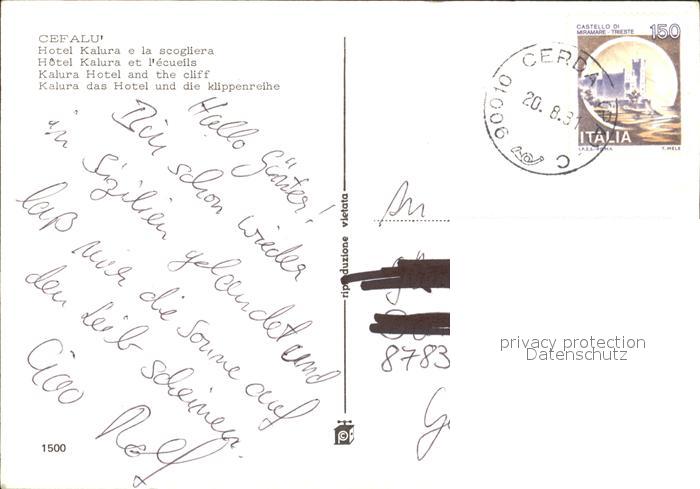 CEFALU'
Hotel Kalura e la scogliera
Hôtel Kalura et l'écueils
Kalura Hotel and the cliff
Kalura das Hotel und die klippenreihe
Hallo Günter!
Bin schon wieder
in Sizilien gelandet und
laß mir die Sonne auf
den Leib scheinen.
Ciao Rolf
1500
riproduzione vietata
CASTELLO DI
MIRAMARE - TRIESTE
150
ITALIA
I.P.Z.S. - ROMA
T. MELE
90010 CERDA
20.8.81
An
8783
privacy protection
Datenschutz